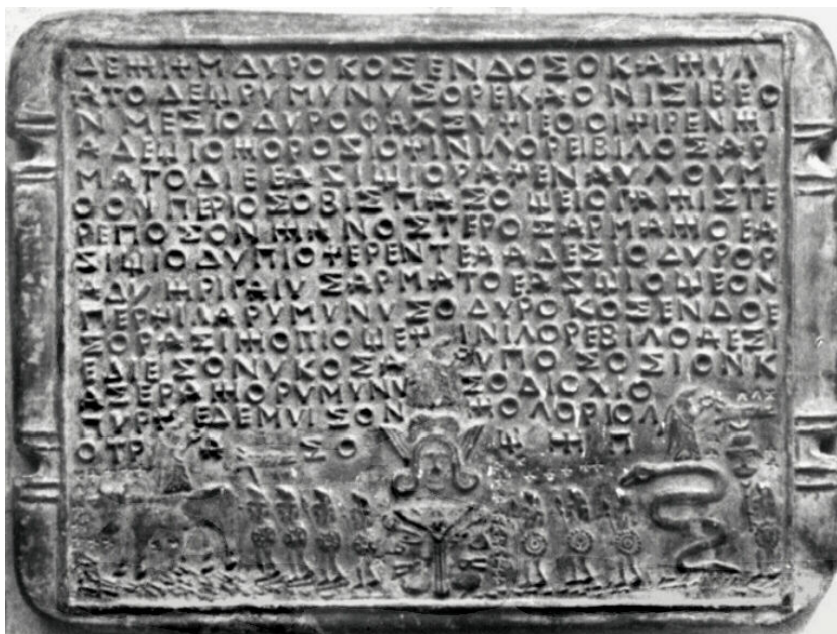 ΔΕΨΙΨΜΔΥΡΟΚΟΣΕΝΔΟΣΟΚΑΨΥΛ
ΑΤΟΔΕΨΡΥΜΥΝΥΣΟΡΕΚΑΟΝΙΣΙΒΕΟ
ΝΜΕΣΙΟΔΥΡΟΦΑΧΣΥΨΙΕΟΟΙΨΙΡΕΝΨΙ
ΑΔΕΨΙΟΨΟΡΟΣΙΟΨΙΝΙΛΟΡΕΙΒΙΛΟΣΑΡ
ΜΑΤΟΔΙΕΕΑΣΙΨΙΟΡΑΨΕΝΑΥΛΟΥΜ
ΟΟΝΠΕΡΙΟΣΟΒΙΣΠΑΣΟΨΕΙΟΓΑΨΙΣΤΕ
ΡΕΠΟΣΟΝΨΑΝΟΣΤΕΡΟΣΑΡΜΑΨΟΕΑ
ΣΙΨΙΟΔΥΠΙΟΨΕΡΕΝΤΕΑΑΔΕΣΙΟΔΥΡΟΡ
ΑΔΥΨΡΙΓΑΙΥΣΑΡΜΑΤΟΕΑΣΨΙΟΨΕΟΝ
ΠΕΡΨΙΔΑΡΥΜΥΝΥΣΟΔΥΡΟΚΟΣΕΝΔΟΕ
ΣΟΡΑΣΙΨΟΠΙΟΨΕΨΙΝΙΛΟΡΕΒΙΛΟΑΕΣΙ
ΕΔΙΕΣΟΝΥΚΟΣΑ ΥΠΟΣΟΣΙΟΝΚ
ΑΣΕΡΑΨΟΡΥΜΥΝΥ ΣΟΔΙΟΧΙΟ
ΠΥΡΨΕΔΕΜΥΙΣΟΝ ΨΟΛΟΡΙΟΛ
ΟΤΡ Α ΣΟ Ψ Ψ Π